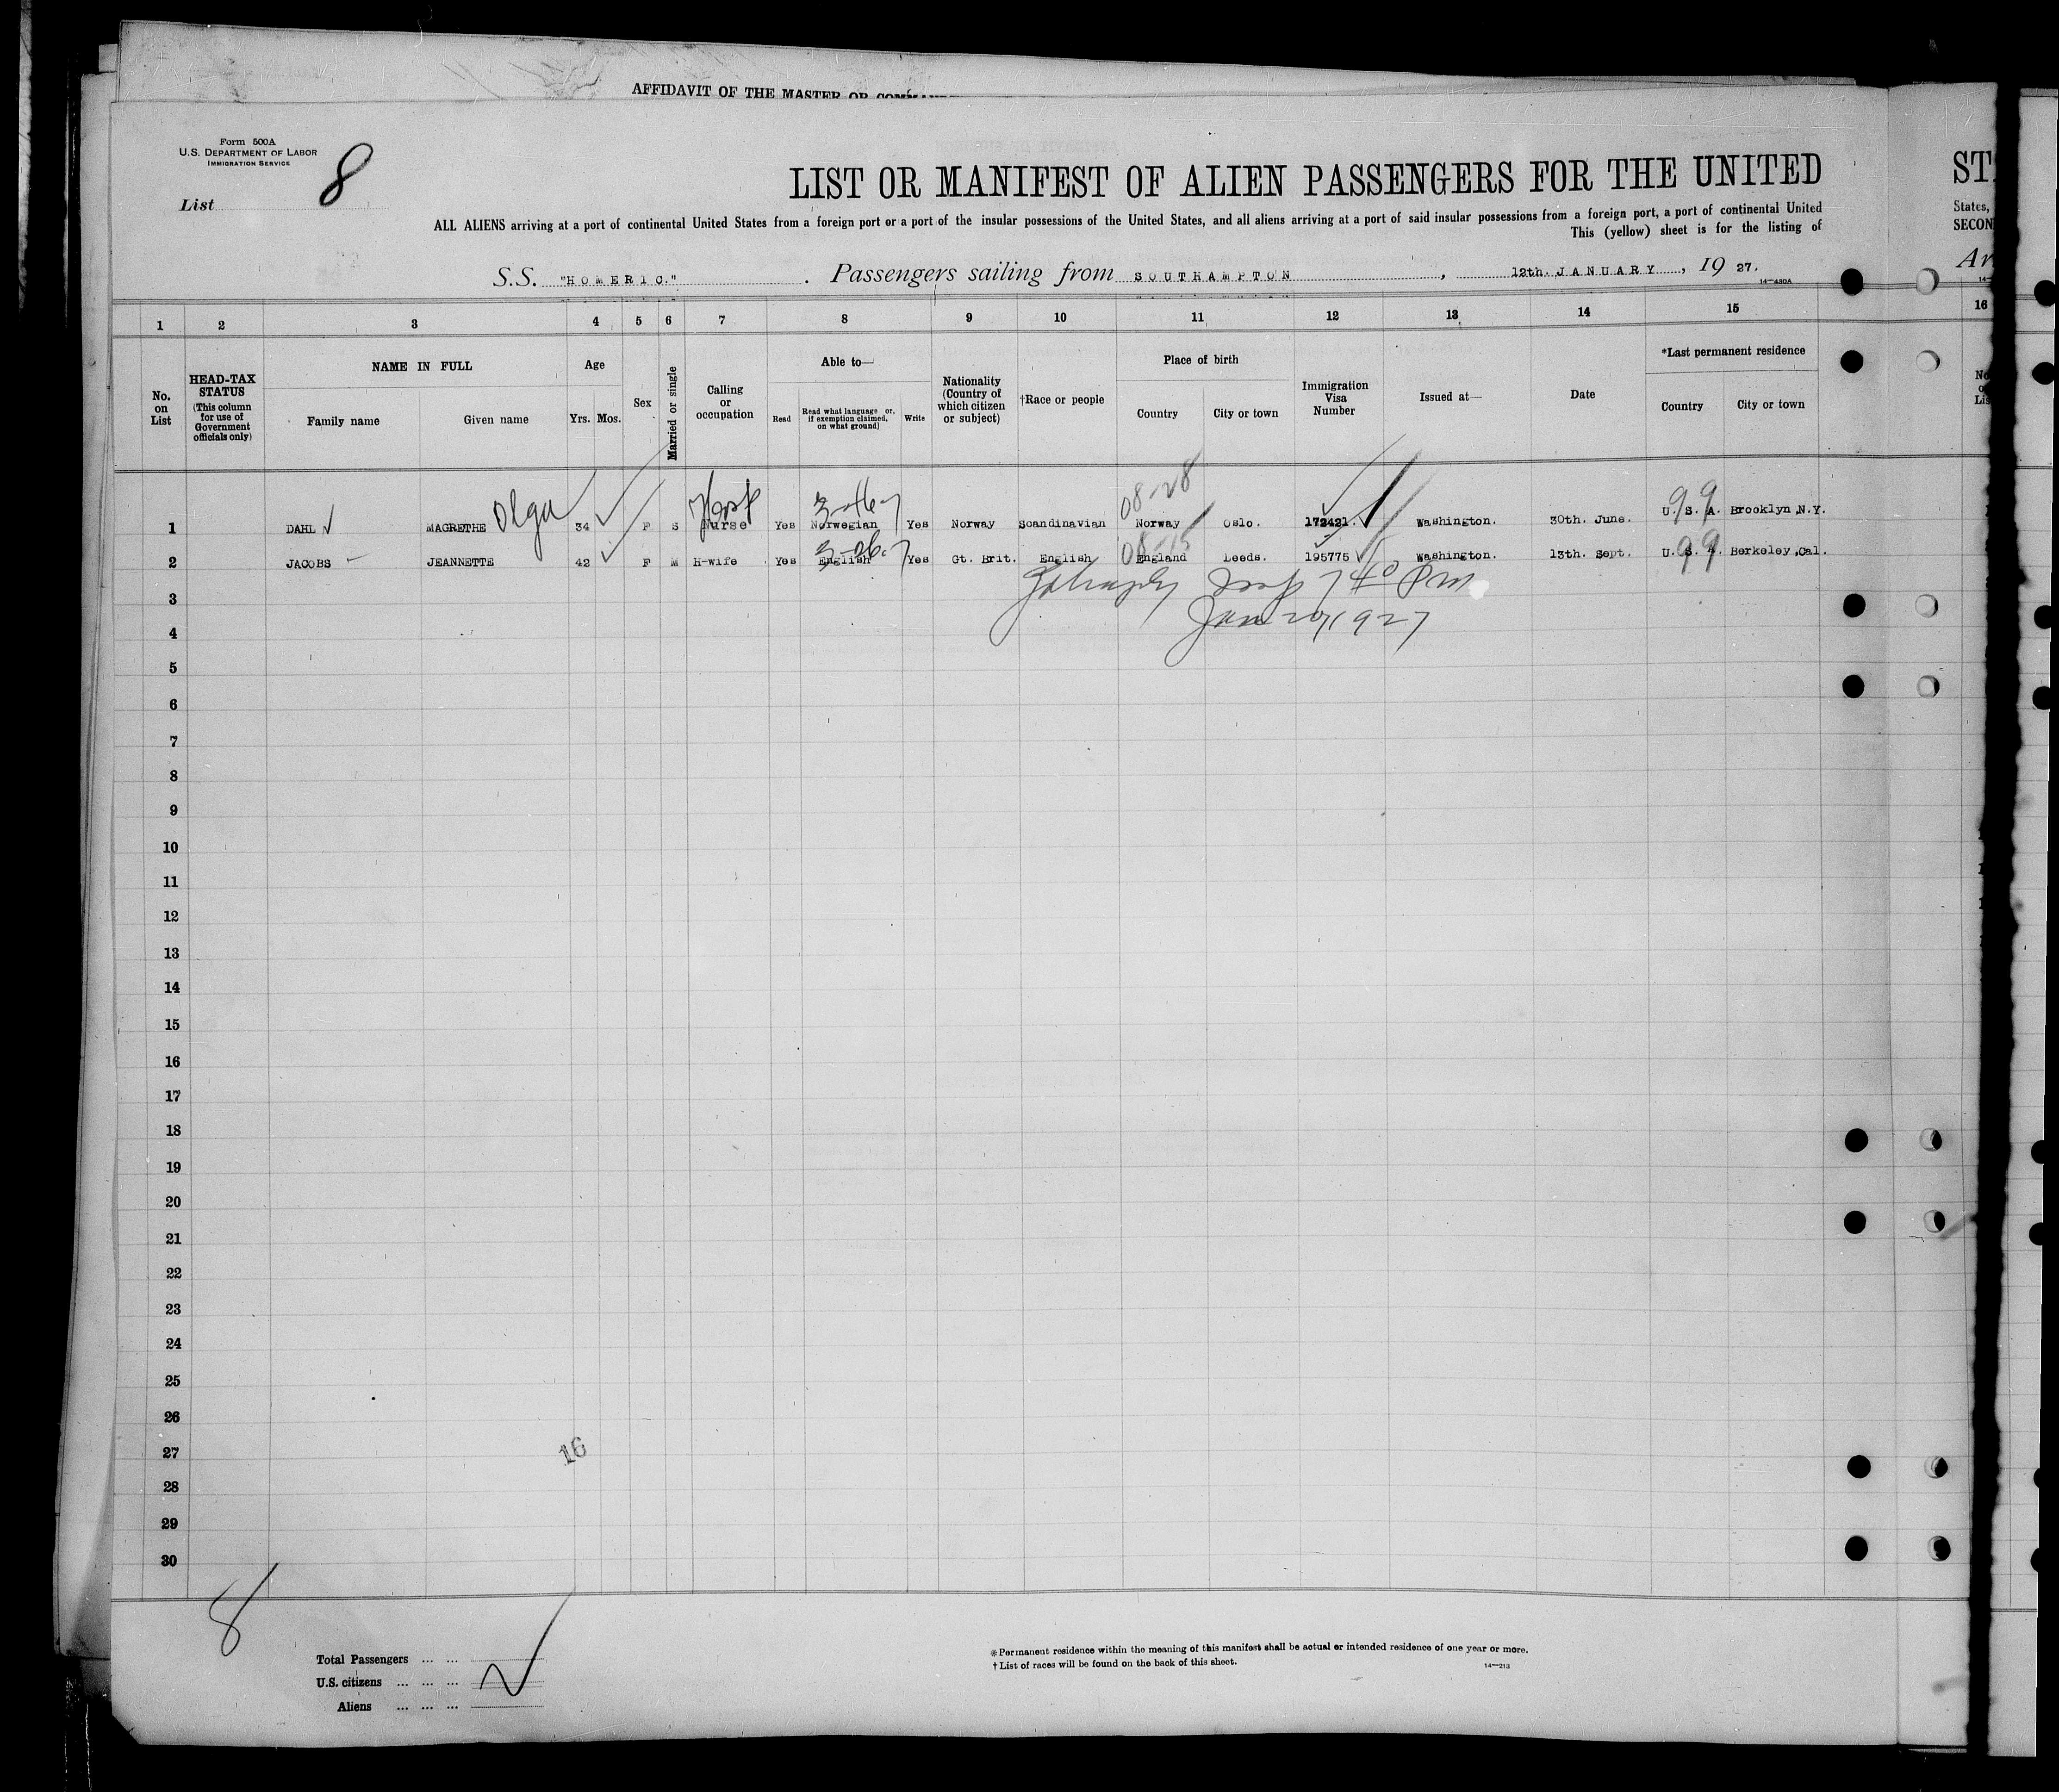 AFFIDAVIT OF THE MASTER OR
Form 500A
U.S. DEPARTMENT OF LABOR
IMMIGRATION SERVICE
List 8
LIST OR MANIFEST OF ALIEN PASSENGERS FOR THE UNITED
ALL ALIENS arriving at a port of continental United States from a foreign port or a port of the insular possessions of the United States, and all aliens arriving at a port of said insular possessions from a foreign port, a port of continental United
This (yellow) sheet is for the listing of
States,
SECON
S.S. "HOMERIC." Passengers sailing from SOUTHAMPTON, 12th. JANUARY, 19 27.
14—430A
1 2 3 4 5 6 7 8 9 10 11 12 13 14 15 16
No. on List
HEAD-TAX STATUS
(This column for use of Government officials only)
NAME IN FULL
Family name Given name
Age
Yrs. Mos.
Sex
Married or single
Calling or occupation
Able to—
Read
Read what language or, if exemption claimed, on what ground)
Write
Nationality (Country of which citizen or subject)
†Race or people
Place of birth
Country City or town
Immigration Visa Number
Issued at—
Date
*Last permanent residence
Country City or town
Olga Hosp 08-28 99
1 DAHL MAGRETHE 34 F S Nurse Yes Norwegian Yes Norway Scandinavian Norway Oslo. 172421. Washington. 30th. June. U. S. A. Brooklyn,N.Y.
08-15 99
2 JACOBS JEANNETTE 42 F M H-wife Yes English Yes Gt. Brit. English England Leeds. 195775 Washington. 13th. Sept. U. S. A. Berkeley,Cal.
7 40 Pm
3
Jan 20, 1927
4
5
6
7
8
9
10
11
12
13
14
15
16
17
18
19
20
21
22
23
24
25
26
27
16
28
29
30
8
Total Passengers ... ...
U.S. citizens ... ... ...
Aliens ... ... ...
* Permanent residence within the meaning of this manifest shall be actual or intended residence of one year or more.
† List of races will be found on the back of this sheet.
14—213